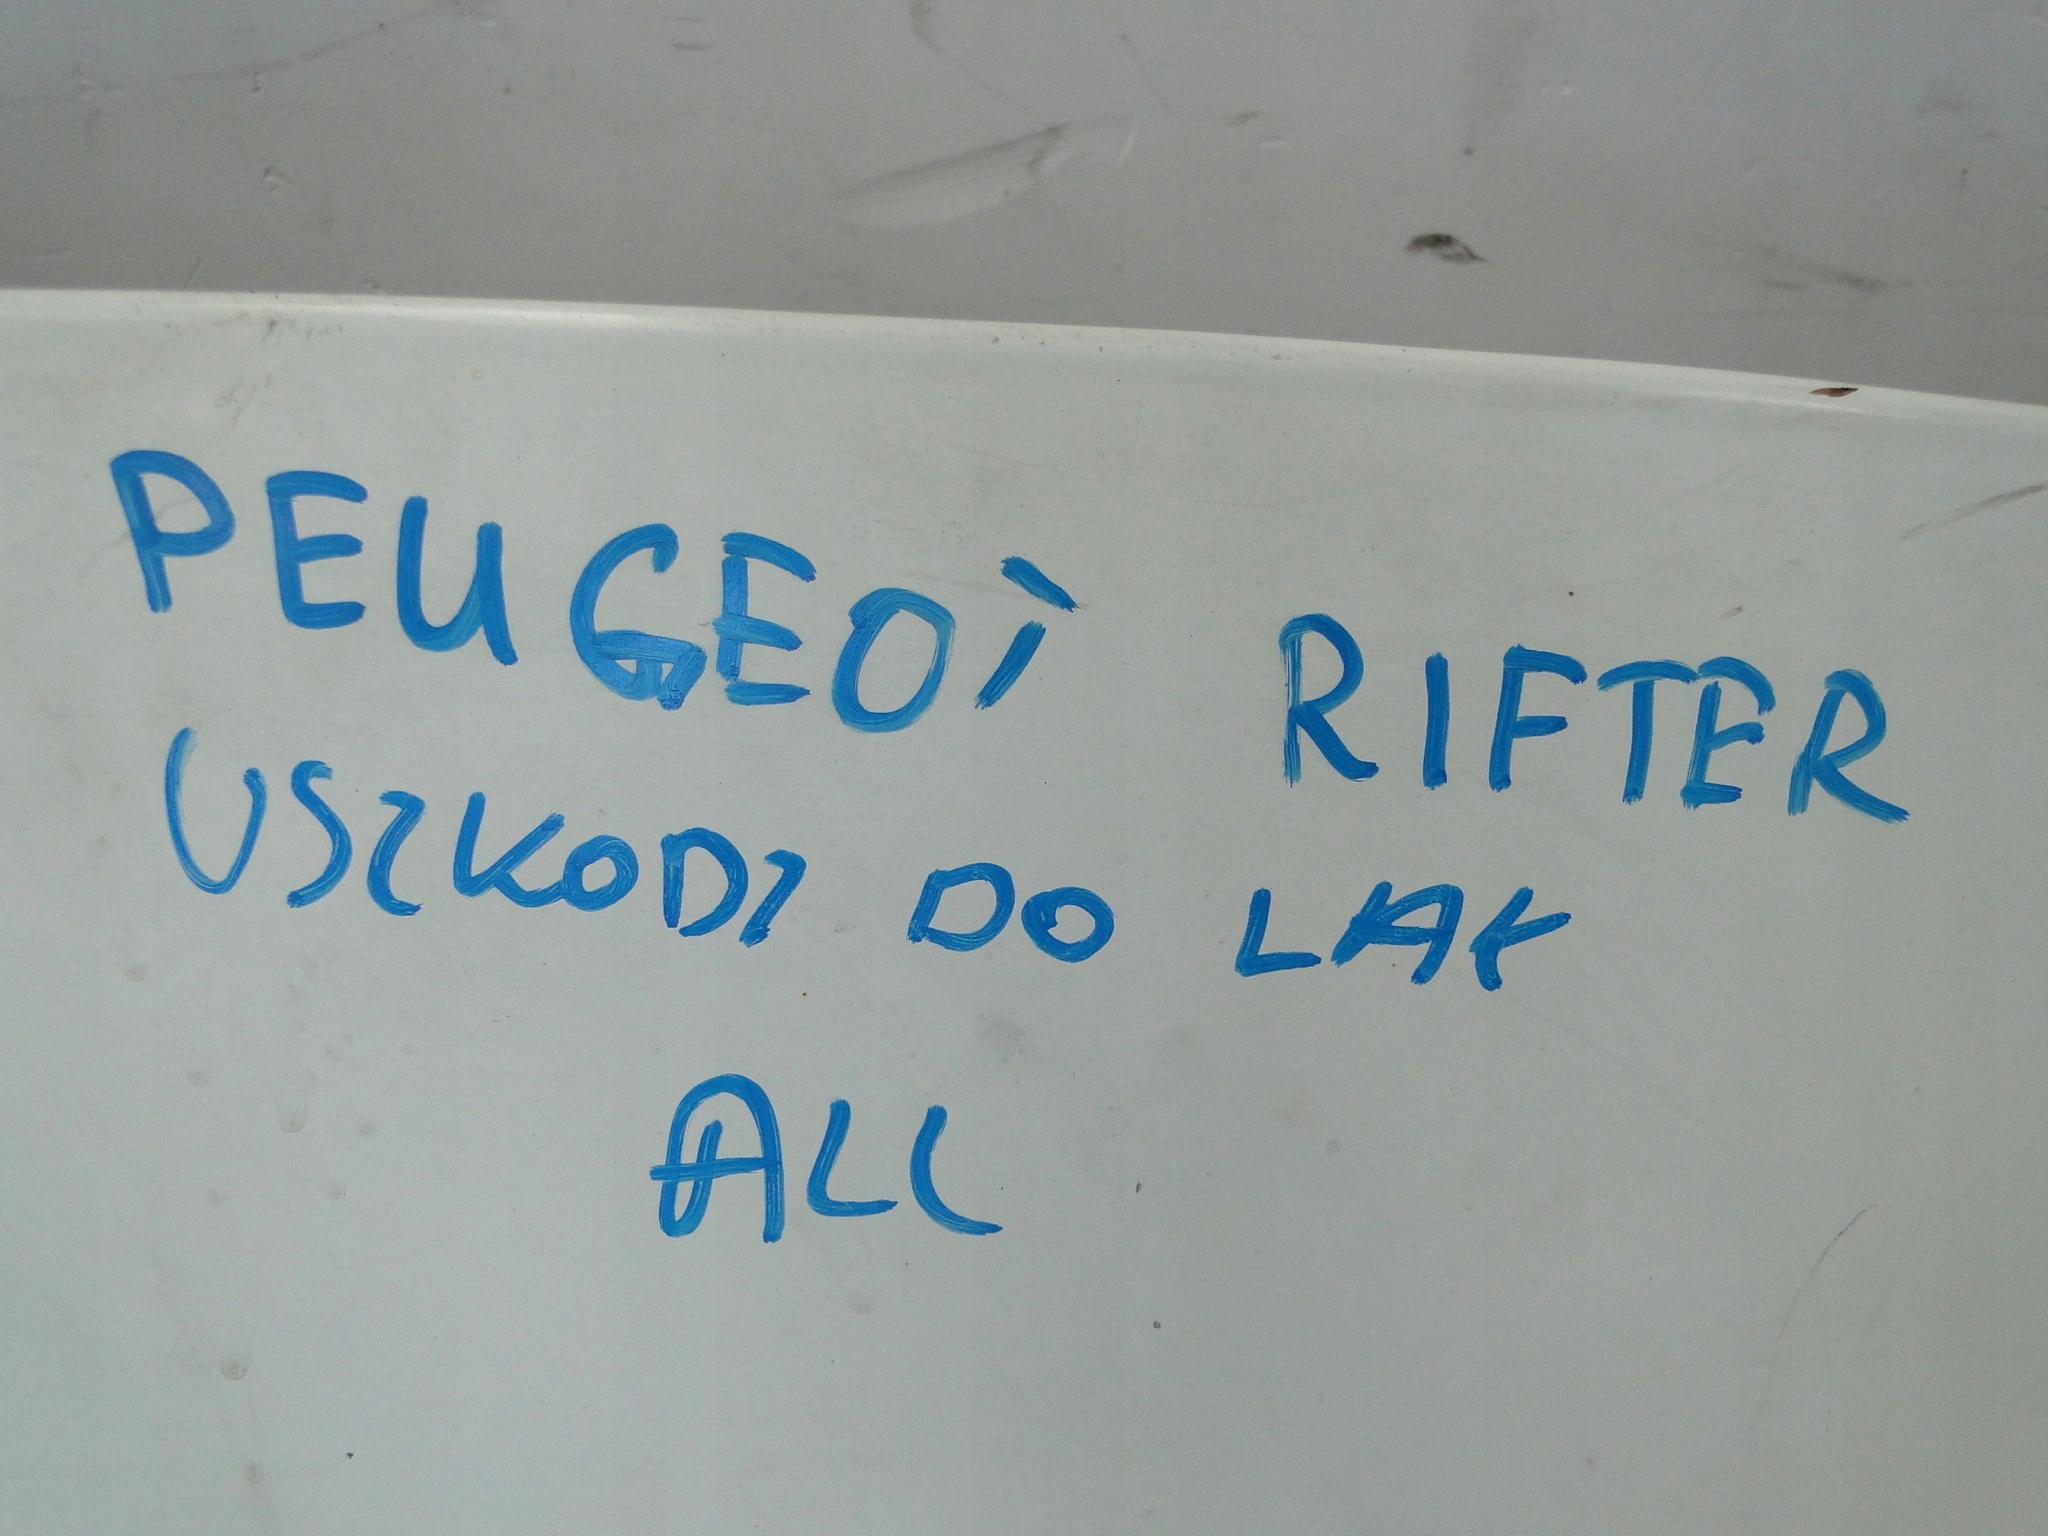 PEUGEOT RIFTER
USZKODZ DO LAK
ALL